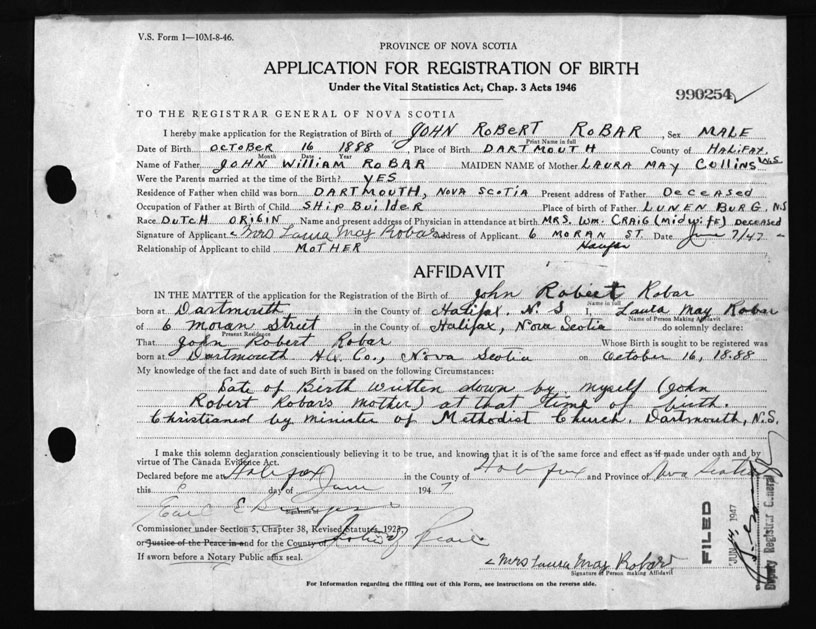 V.S. Form 1—10M-8-46.
PROVINCE OF NOVA SCOTIA
APPLICATION FOR REGISTRATION OF BIRTH
Under the Vital Statistics Act, Chap. 3 Acts 1946
990254
TO THE REGISTRAR GENERAL OF NOVA SCOTIA
I hereby make application for the Registration of Birth of JOHN ROBERT ROBAR, Sex MALE
Print Name in full
Date of Birth OCTOBER 16 1888, Place of Birth DARTMOUTH County of HALIFAX, N.S
Month Date Year
Name of Father JOHN William ROBAR MAIDEN NAME of Mother LAURA MAY Collins
Were the Parents married at the time of Birth? YES
Residence of Father when child was born DARTMOUTH, NOVA SCOTIA Present address of Father DECEASED
Occupation of Father at Birth of Child SHip BuilDER Place of birth of Father LUNENBURG. N.S
Race DUTCH ORIGIN Name and present address of Physician in attendance at birth MRS. WM. CRAIG (midwife) DECEASED
Signature of Applicant Mrs Laura May Robar Address of Applicant 6 MORAN ST. Date June 7/47
Relationship of Applicant to child MOTHER
AFFIDAVIT
IN THE MATTER of the application for the Registration of the Birth of John Robert Robar
Name in full
born at Dartmouth in the County of Halifax. N. S I, Laura May Robar
Name of Person Making Affidavit
of 6 Moran Street in the County of Halifax, Nova Scotia do solemnly declare:
Present Residence
That John Robert Robar Whose Birth is sought to be registered was
born at Dartmouth Hx. Co., Nova Scotia on October 16, 1888
My knowledge of the fact and date of such Birth is based on the following Circumstances:
Date of Birth written down by myself (John
Robert Robar's mother) at that time of birth.
Christianed by minister of Methodist Church. Dartmouth, N.S.
I make this solemn declaration conscientiously believing it to be true, and knowing that it is of the same force and effect as if made under oath and by
virtue of The Canada Evidence Act.
Declared before me at Halifax in the County of Halifax and Province of Nova Scotia
this day of June 1947
Signature of
Commissioner under Section 5, Chapter 38, Revised Statutes, 1923
or Justice of the Peace in and for the County of
If sworn before a Notary Public affix seal.
Mrs Laura May Robar
Signature of Person making Affidavit
FILED
JUN 1947
Deputy Registrar General
For Information regarding the filling out of this Form, see instructions on the reverse side.